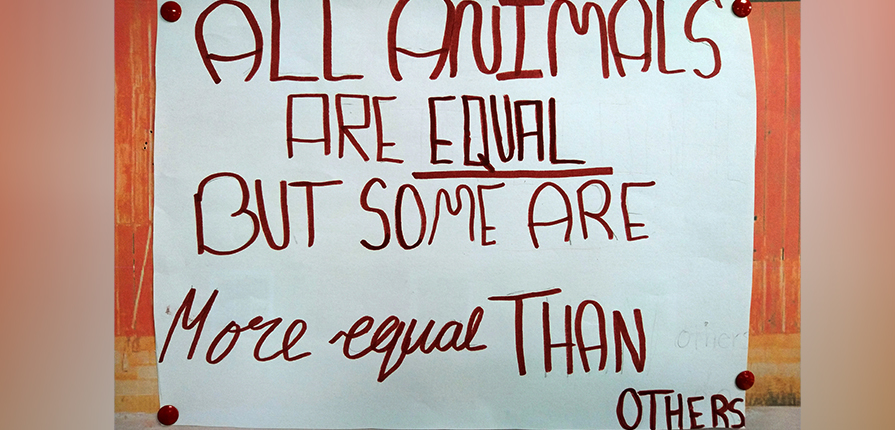 ALL ANIMALS
ARE EQUAL
BUT SOME ARE
More equal THAN
other
OTHERS